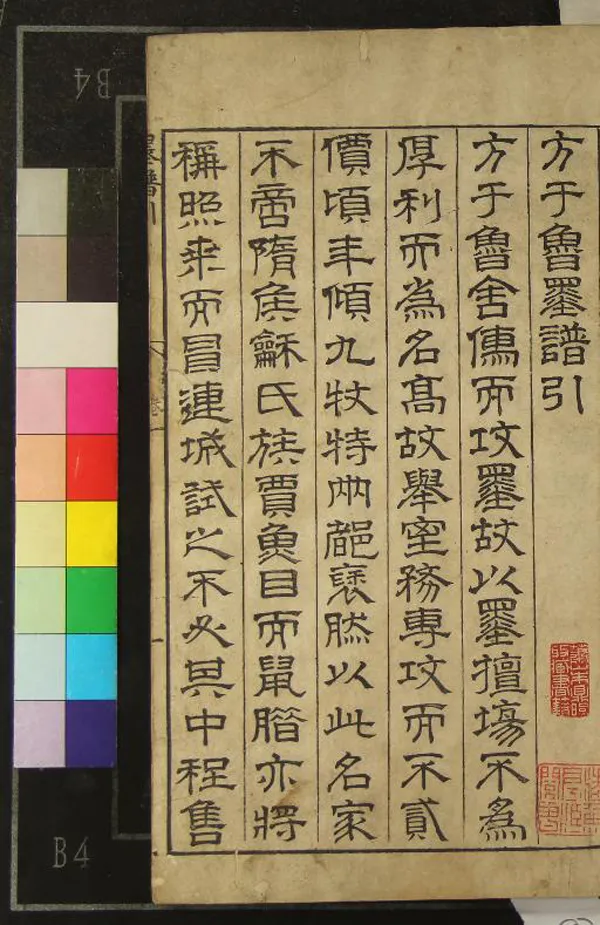 方于魯墨譜引
方于魯舍儒而攻墨故以墨擅場不為
厚利而為名高故舉室務專攻而不貳
價頃年傾九牧特兩都褎然以此名家
不啻隋侯龢氏族賈魚目而鼠腊亦將
稱照乘而冒連城試之不必其中程售
墨譜引
B4
B4